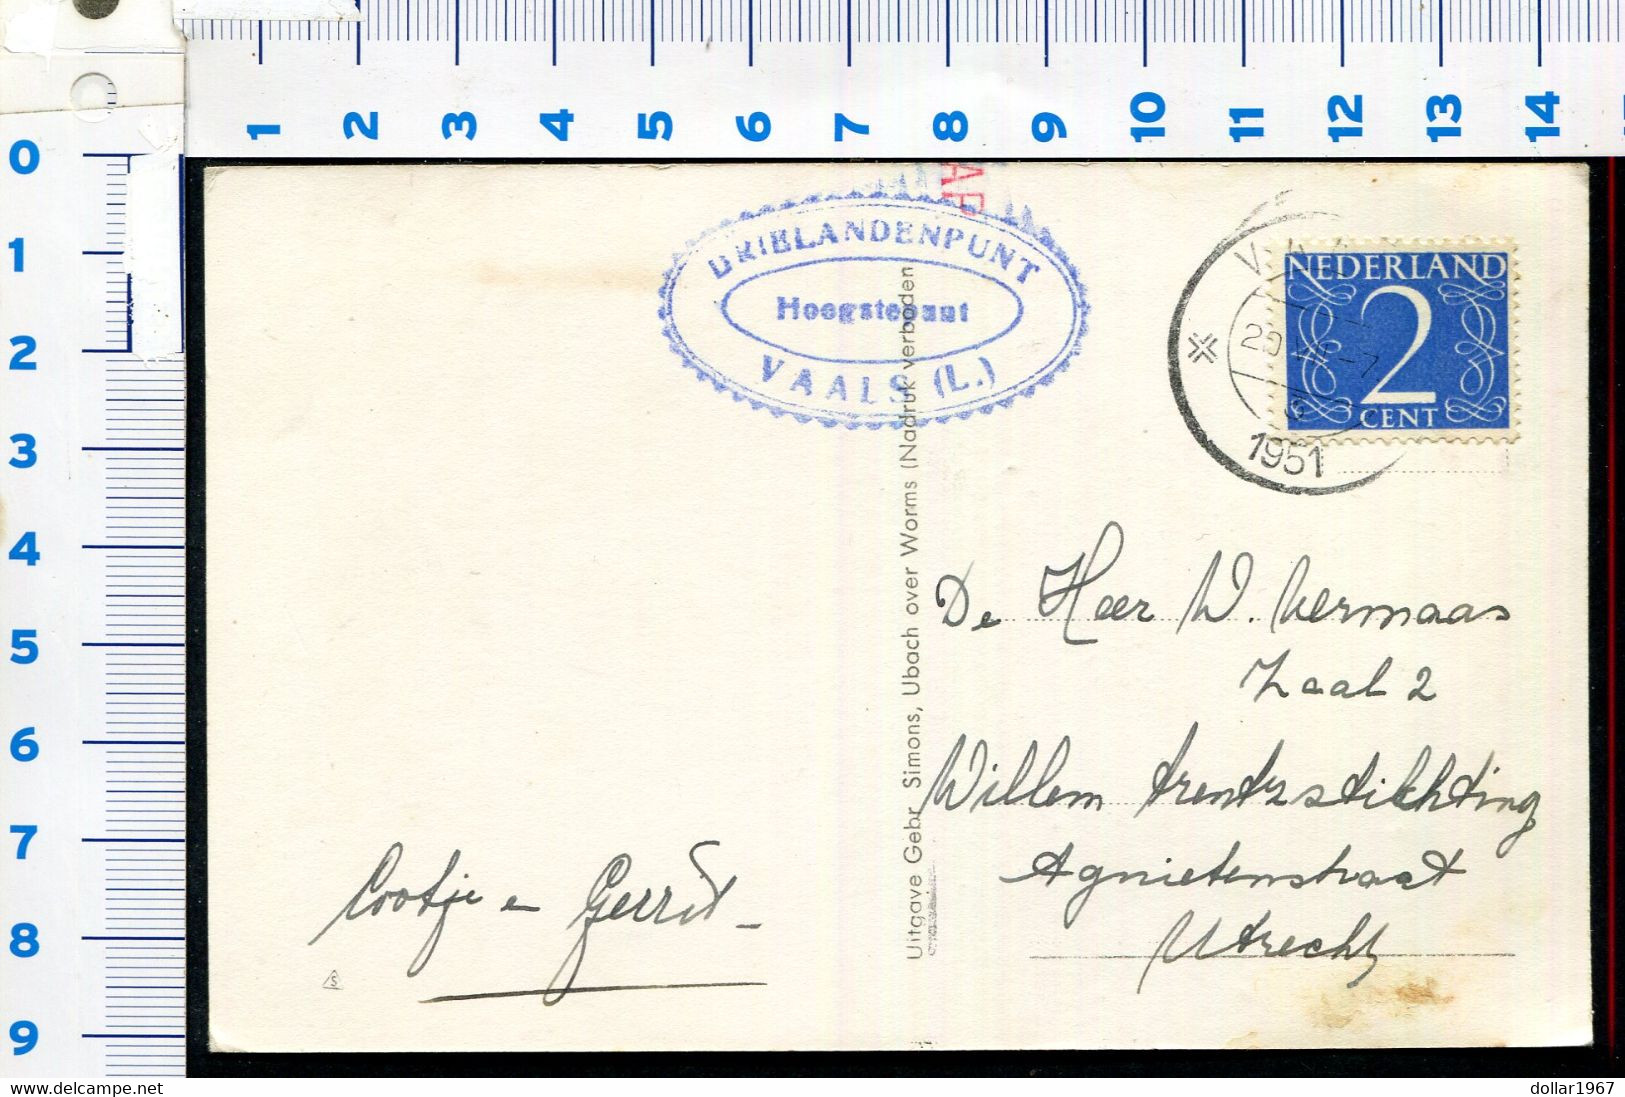 1 2 3 4 5 6 7 8 9 10 11 12 13 14
0
1
2
3
4
5
6
7
8
9
DRIELANDENPUNT
Hoogstepunt
VAALS (L.)
1951
NEDERLAND
2
CENT
Uitgave Gebr. Simons, Ubach over Worms (Nadruk verboden
De Heer W. Vermaas
Zaal 2
Willem Arentszstichting
Agnietenstraat
Utrecht
Cootje en Gerrit
S
delcampe.net
dollar1967